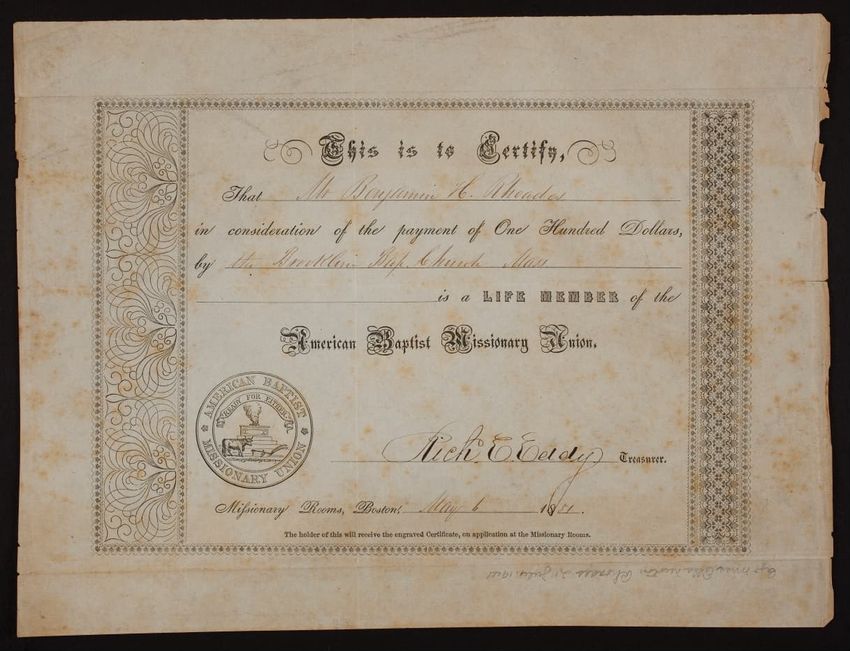 This is to Certify,
That Mr Benjamin H. Rhoades
in consideration of the payment of One Hundred Dollars,
by the Brookline Bap. Church Mass
is a LIFE MEMBER of the
American Baptist Missionary Union.
AMERICAN BAPTIST
READY FOR EITHER
MISSIONARY UNION
Rich. E Eddy Treasurer.
Missionary Rooms, Boston, May 6 1881.
The holder of this will receive the engraved Certificate, on application at the Missionary Rooms.